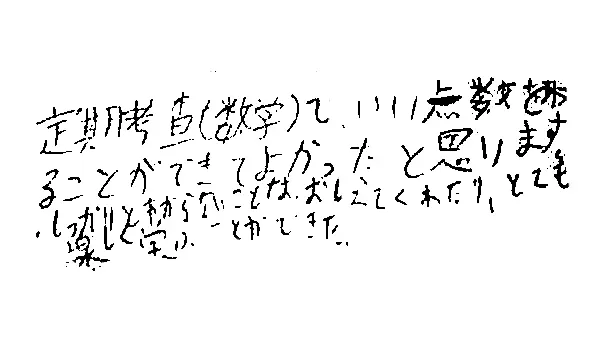 定期考査(数学)で、いい点数を
ることができてよかったと思います
しっかりとわからないことは、おしえてくれたり、とても
楽しく学ぶことができた。